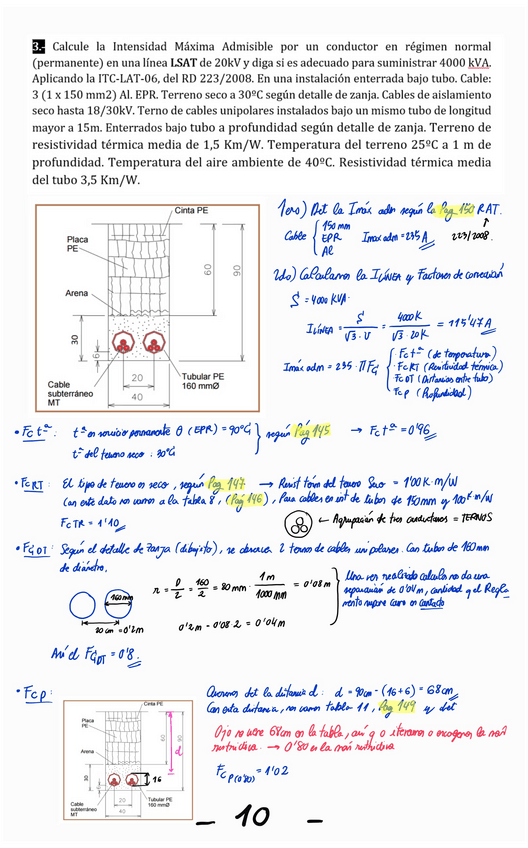 3.- Calcule la Intensidad Máxima Admisible por un conductor en régimen normal
(permanente) en una línea LSAT de 20kV y diga si es adecuado para suministrar 4000 kVA.
Aplicando la ITC-LAT-06, del RD 223/2008. En una instalación enterrada bajo tubo. Cable:
3 (1 x 150 mm2) Al. EPR. Terreno seco a 30ºC según detalle de zanja. Cables de aislamiento
seco hasta 18/30kV. Terno de cables unipolares instalados bajo un mismo tubo de longitud
mayor a 15m. Enterrados bajo tubo a profundidad según detalle de zanja. Terreno de
resistividad térmica media de 1,5 Km/W. Temperatura del terreno 25ºC a 1 m de
profundidad. Temperatura del aire ambiente de 40ºC. Resistividad térmica media
del tubo 3,5 Km/W.
Cinta PE
Placa
PE
60
90
Arena
30
6
20
40
Cable
subterráneo
MT
Tubular PE
160 mmØ
1ero) Det la Imáx adm según la Pag 150 RAT.
223/2008.
Cable { 150 mm
EPR
Al
Imax adm = 235 A
2do) Calculamos la ILÍNEA y Factores de corrección
S = 4000 KVA
ILÍNEA = S / √3 · V = 4000K / √3 · 20K = 115'47 A
Imáx adm = 235 · ΠFc
Fc tª (de temperatura)
FcRT (Resistividad térmica)
FcDT (Distancias entre tubo)
Fcp (Profundidad)
• Fc tª: tª en servicio permanente θ (EPR) = 90ºC
tª del terreno seco: 30ºC
según Pág 145 → Fc tª = 0'96
• FcRT: El tipo de terreno es seco, según Pag 147 → Resist térm del terreno Seco = 1'00 K·m/W
Con este dato nos vamos a la tabla 8, (Pag 146), Para cables en int de tubos de 150mm y 1'00 K·m/W
FcTR = 1'10
← Agrupación de tres conductores = TERNOS
• FcDT: Según el detalle de zanja (dibujito), se observa 2 ternos de cables unipolares. Con tubos de 160 mm
de diámetro.
160mm
20 cm = 0'2m
r = D/2 = 160/2 = 80 mm · 1m / 1000 mm = 0'08 m
0'2 m - 0'08·2 = 0'04 m
Una vez realizado calculo nos da una
separación de 0'04m, cantidad q el Regla-
mento supone como en contacto
Así el FcDT = 0'8
• Fcp:
Cinta PE
Placa
PE
60
90
d
Arena
30
16
6
20
40
Cable
subterráneo
MT
Tubular PE
160 mmØ
Queremos det la distancia d: d = 90cm - (16+6) = 68cm
Con esta distancia, nos vamos tabla 11, Pag 149 y det
Ojo no viene 68cm en la tabla, así q o iteramos o escogemos la más
restrictiva. → 0'80 es la más restrictiva
Fcp(0'80) = 1'02
- 10 -